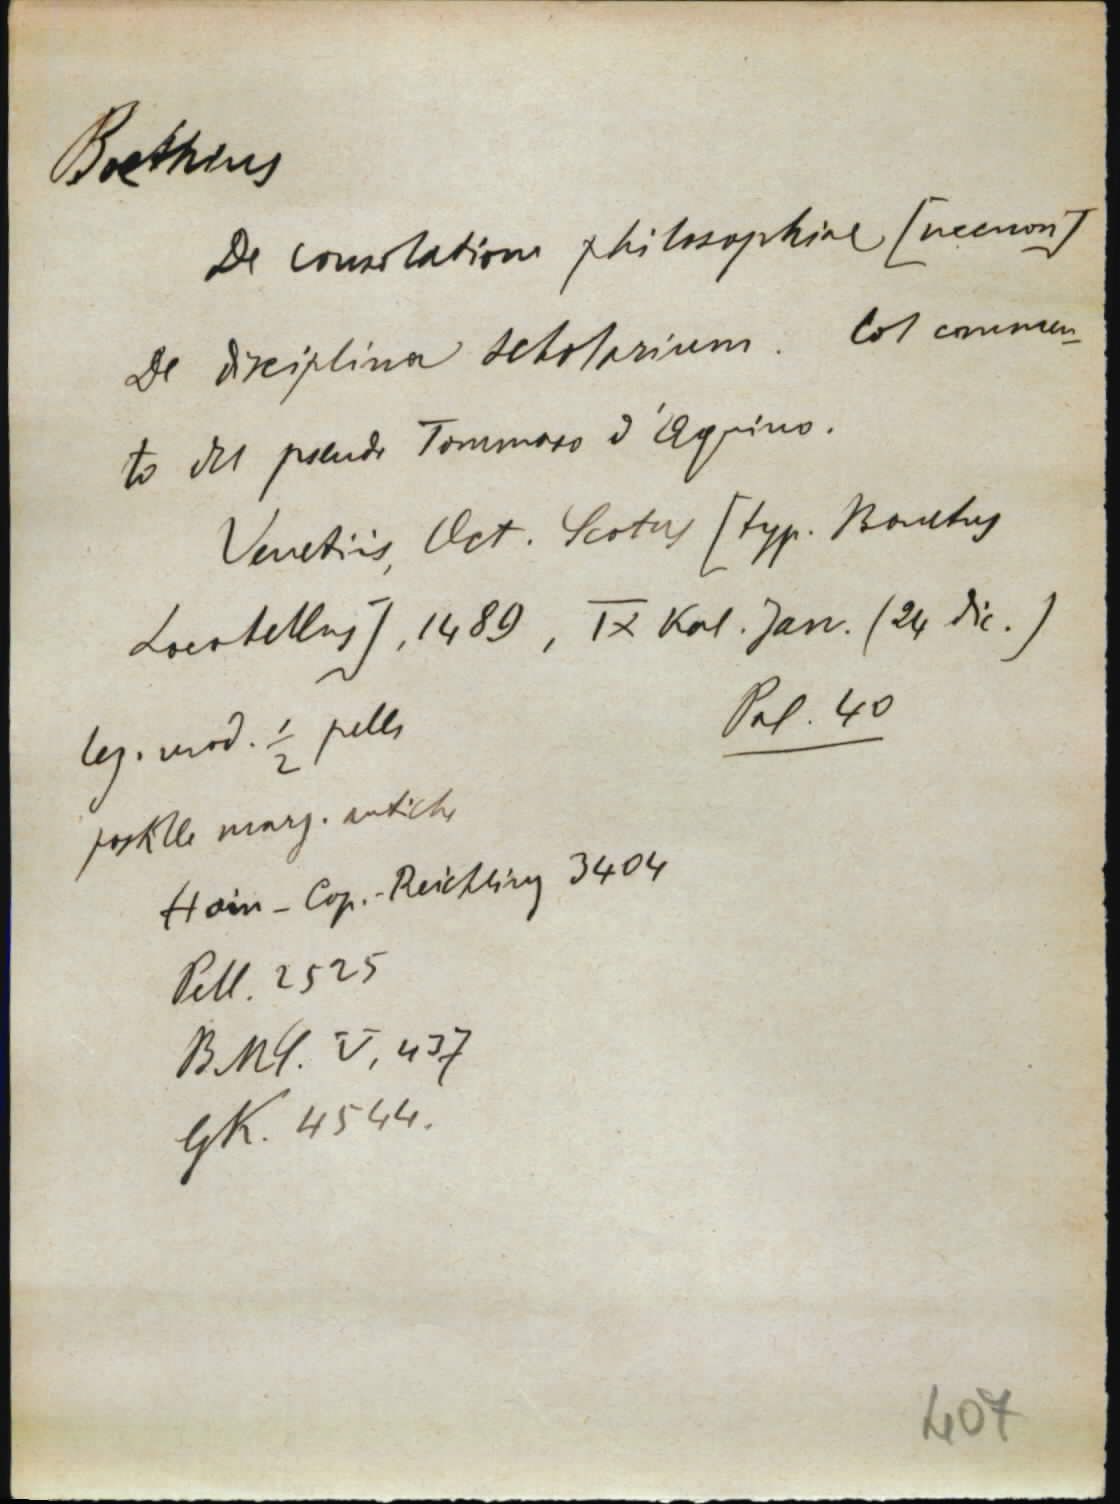 Boethius
De consolatione philosophiae [necnon]
De disciplina scholarium. Col commen-
to del pseudo Tommaso d'Aquino.
Venetiis, Oct. Scotus [typ. Bonetus
Locatellus], 1489, IX Kal. Jan. (24 dic.)
Pal. 40
leg. mod. 1/2 pelle
postille marg. antiche
Hain-Cop.-Reichling 3404
Pell. 2525
B.M.C. V, 437
GK. 4544.
407